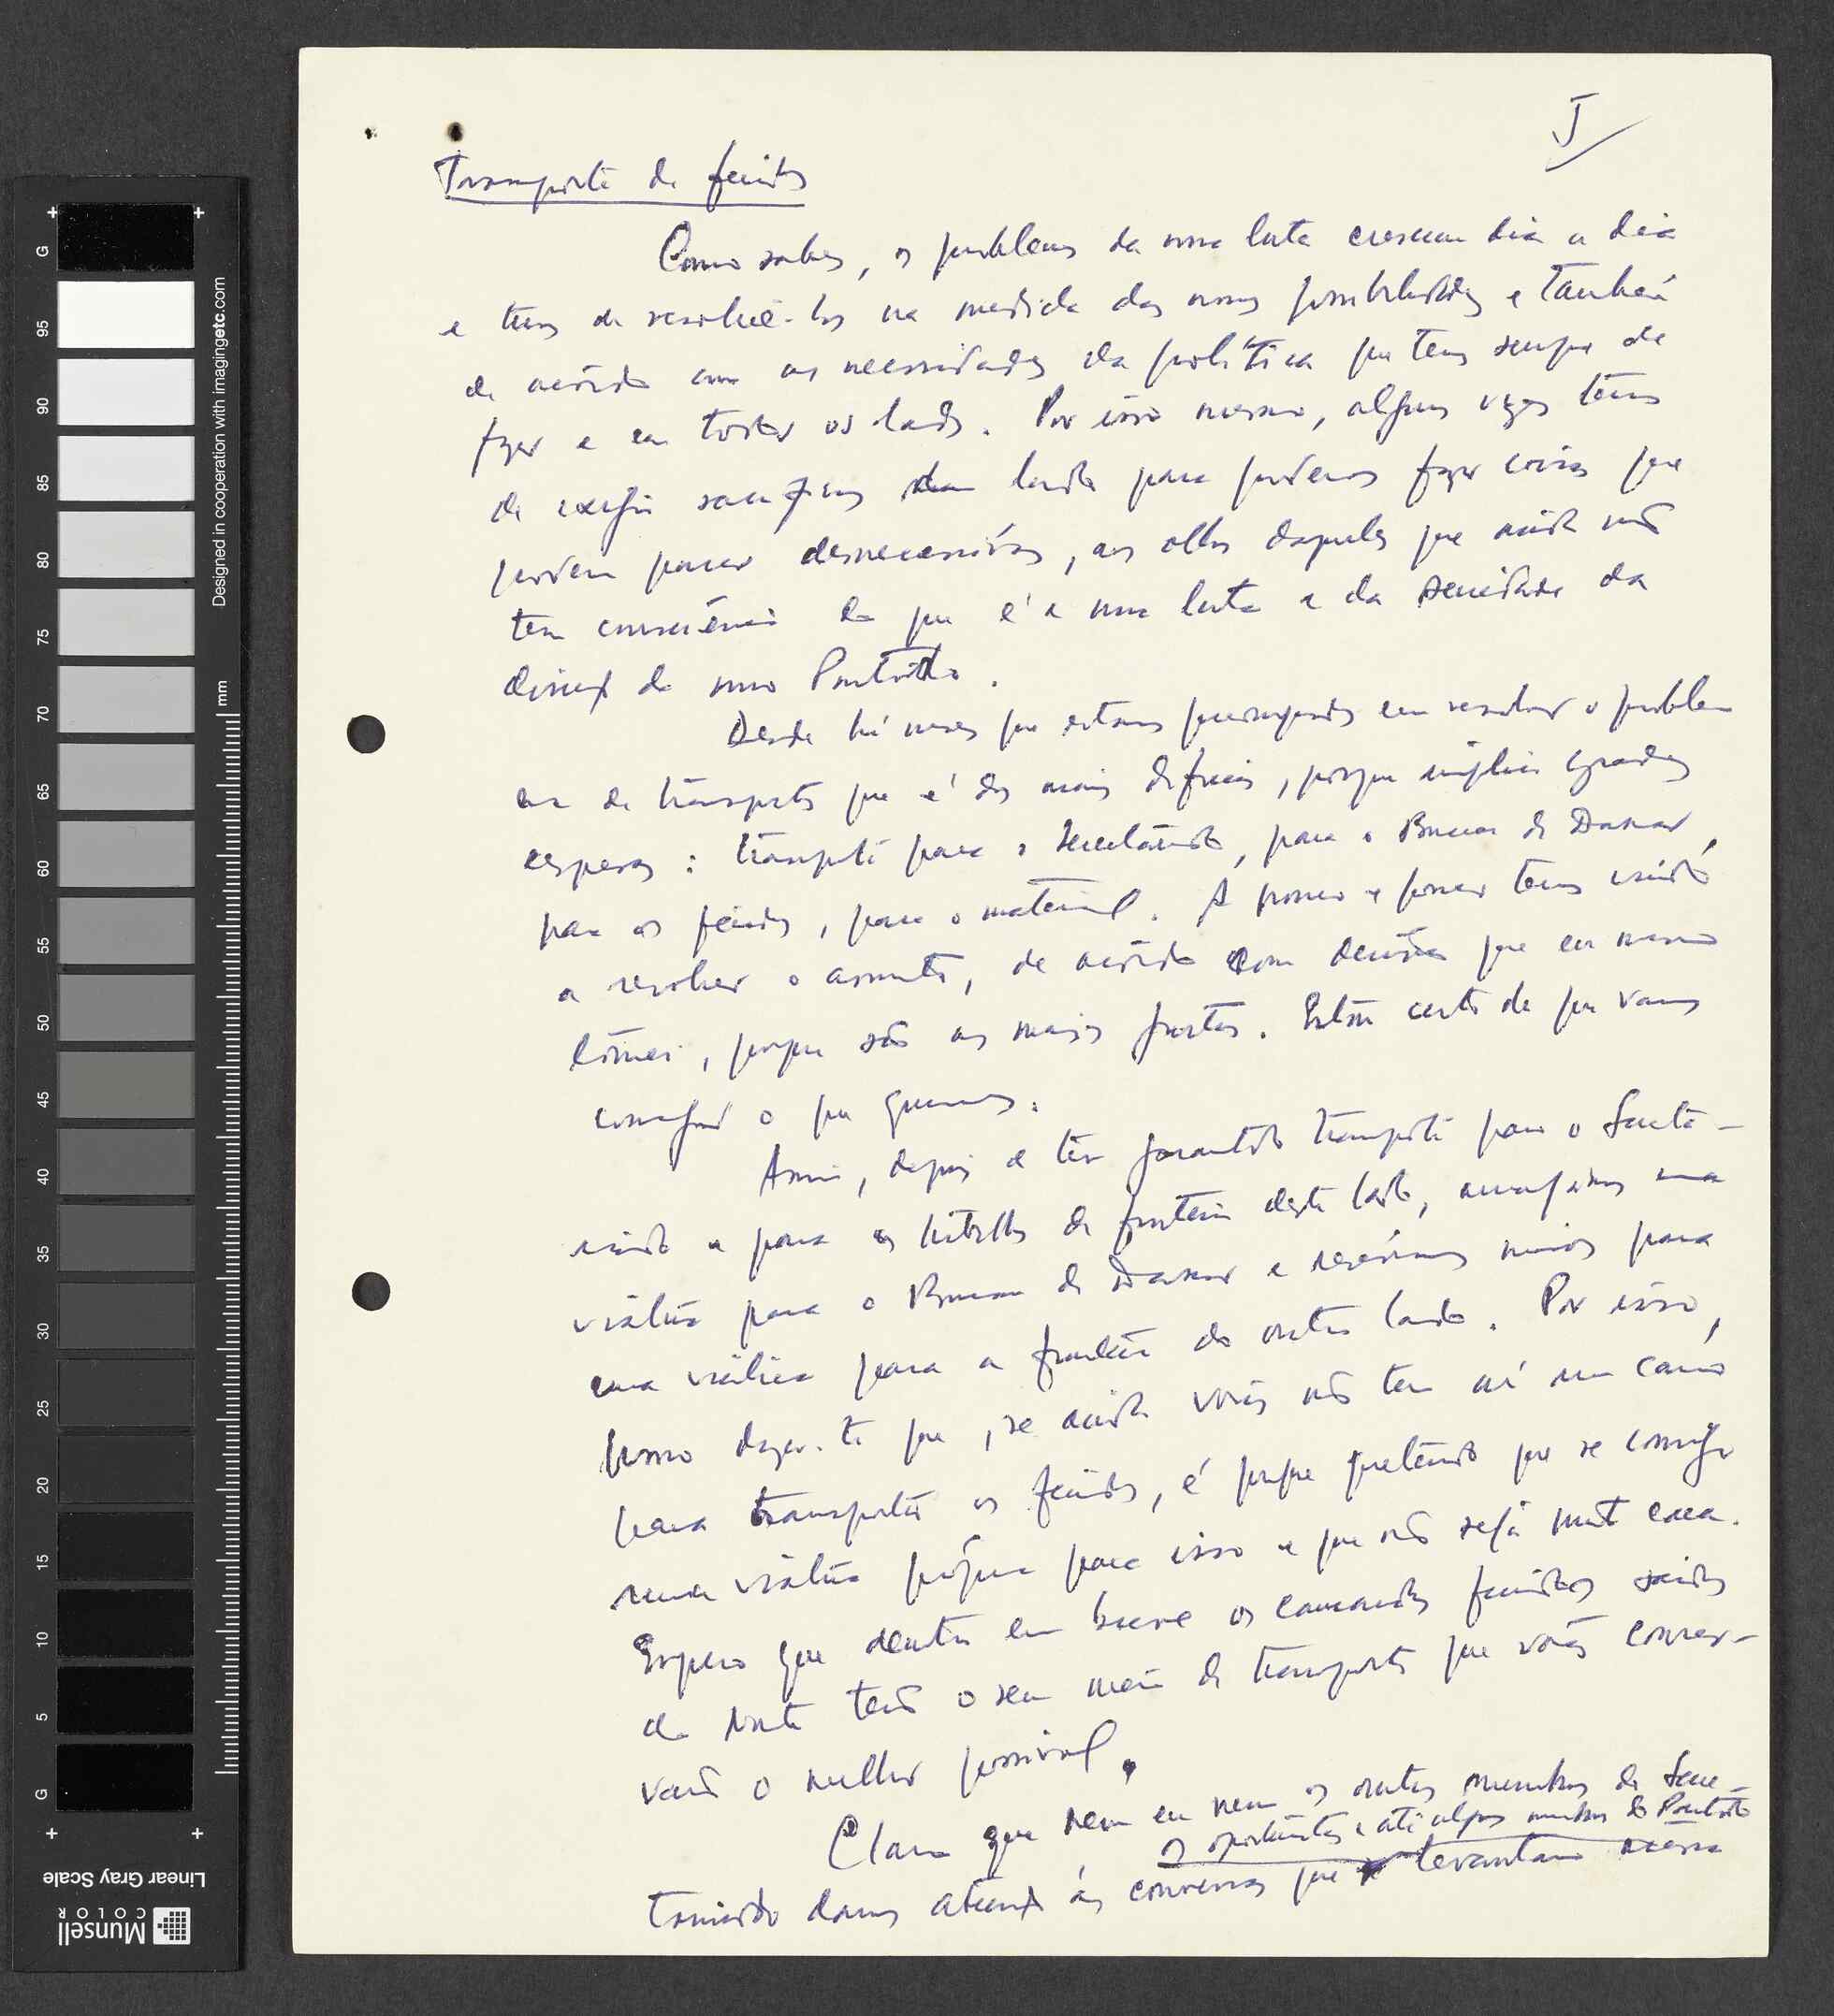 J
Transporte de feridos
Como sabes, os problemas da nossa luta crescem dia a dia
e temos de resolvê-los na medida das nossas possibilidades e também
de acôrdo com as necessidades da política que temos sempre de
fazer e em todos os lados. Por isso mesmo, algumas vezes temos
de exigir sacrifícios dum lado para podermos fazer coisas que
podem parecer desnecessárias, aos olhos daqueles que ainda não
tem consciência do que é a nossa luta e da seriedade da
direcção do nosso Partido.
Desde há meses que estamos preocupados em resolver o problema
de transportes que é dos mais difíceis, porque implica grandes
despesas: transporte para o Secretariado, para o Bureau de Dakar,
para os feridos, para o material. A pouco e pouco temos vindo
a resolver o assunto, de acôrdo com decisões que eu mesmo
tomei, porque são as mais justas. Estou certo de que vamos
conseguir o que queremos.
Assim, depois de ter garantido transporte para o Secreta-
riado e para os trabalhos da fronteira deste lado, arranjámos uma
viatura para o Bureau de Dakar e reservámos meios para
uma viatura para a fronteira do outro lado. Por isso,
posso dizer-te que, se ainda vocês não tem aí um carro
para transportar os feridos, é porque pretendo que se consiga
uma viatura própria para isso e que não seja muito cara.
Espero que dentro em breve os camaradas feridos vindos
do Norte terão o seu meio de transporte que vocês conser-
varão o melhor possível.
Claro que nem eu nem os outros membros do Secre-
os oportunistas e até alguns membros do Partido
tariado damos atenção às conversas que levantam acêrca